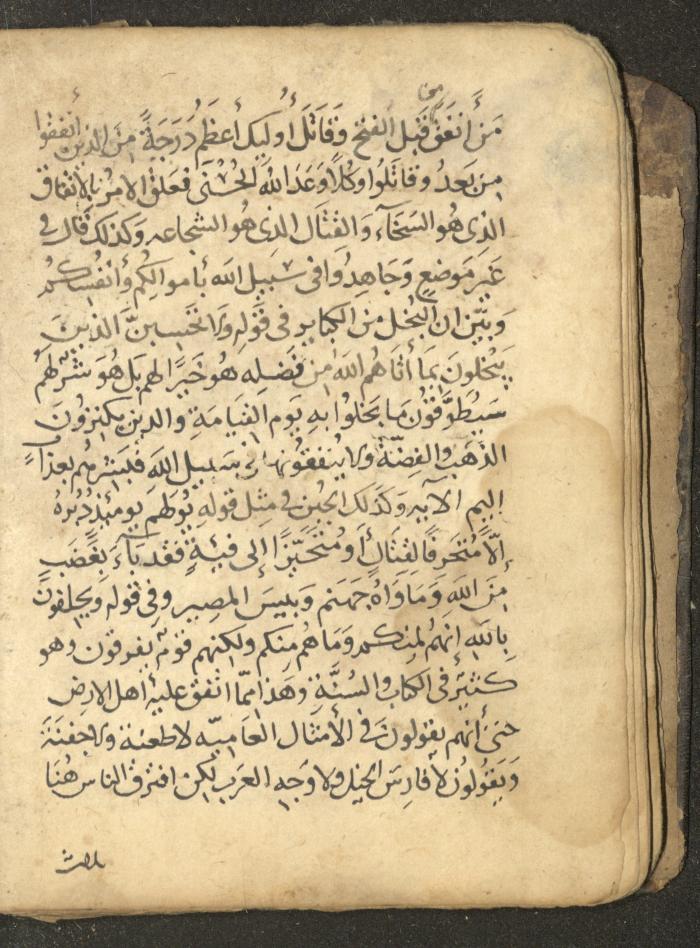 من
مَن أَنفَقَ قَبل الفتح وَقَاتَلَ أوليك أعظَم دَرَجَةً مِنَ الذين أَنفَقوا
مِن بَعدُ وقاتَلُوا وكُلاً وَعَدَ اللهُ الحُسْنَى فعَلقَ الامرُ بالانفاق
الذِى هُو السَخَآء وَالقِتَال الذى هو الشجاعه وَكذلك قَال فى
غَيرِ مَوضعٍ وَجَاهِدُوا فى سَبِيلِ الله بأموالِكُم وأَنْفُسِكُم
وَبيَّن ان البُخل من الكبَاير فى قَوْله ولا تَحْسِبنَّ الَّذينَ
يَبْخَلونَ بِمَا أَتَاهُم اللهُ مِن فَضلِه هُو خَيرًا لهم بَل هُوَ شَرٌّ لَهُمْ
سَيُطَوَّقُونَ مَا بَخلُوا بهِ يَوم القيَامَةِ والذين يكنزُونَ
الذَّهَبَ والفِضَّةَ ولا يُنفقُونها فى سَبيل الله فبَشِّرهُم بعَذَابٍ
اليم الآيه وَكَذَلك الجُبن فى مِثل قوله وَمَن يُوَلهِم يومَئِذٍ دُبُرَهُ
إلاَّ مُتَحَرفًا لِقِتَالٍ أَو مُتَحَيِّزًا إلى فِيَةٍ فَقَد بَآءَ بغَضَبٍ
مِنَ اللهِ وَمَاوَاهُ جَهَنم وَبيسَ المصير وفى قوله وَيَحلِفُونَ
بِالله إنهُم لمِنكم وَمَا هُم مِنكم ولكنهم قوم يفرقون وهو
كثيرٌ فى الكتاب والسُنَّةِ وهَذا مِمّا اتفق عليه أهل الارض
حتى أنهم يقولونَ فى الأمثَال العَاميّه لا طعنة ولا جفنَة
وَيَقُولُونَ لا فارِسَ الخيل ولا وَجه العرب لكن افترق الناس هُنَا